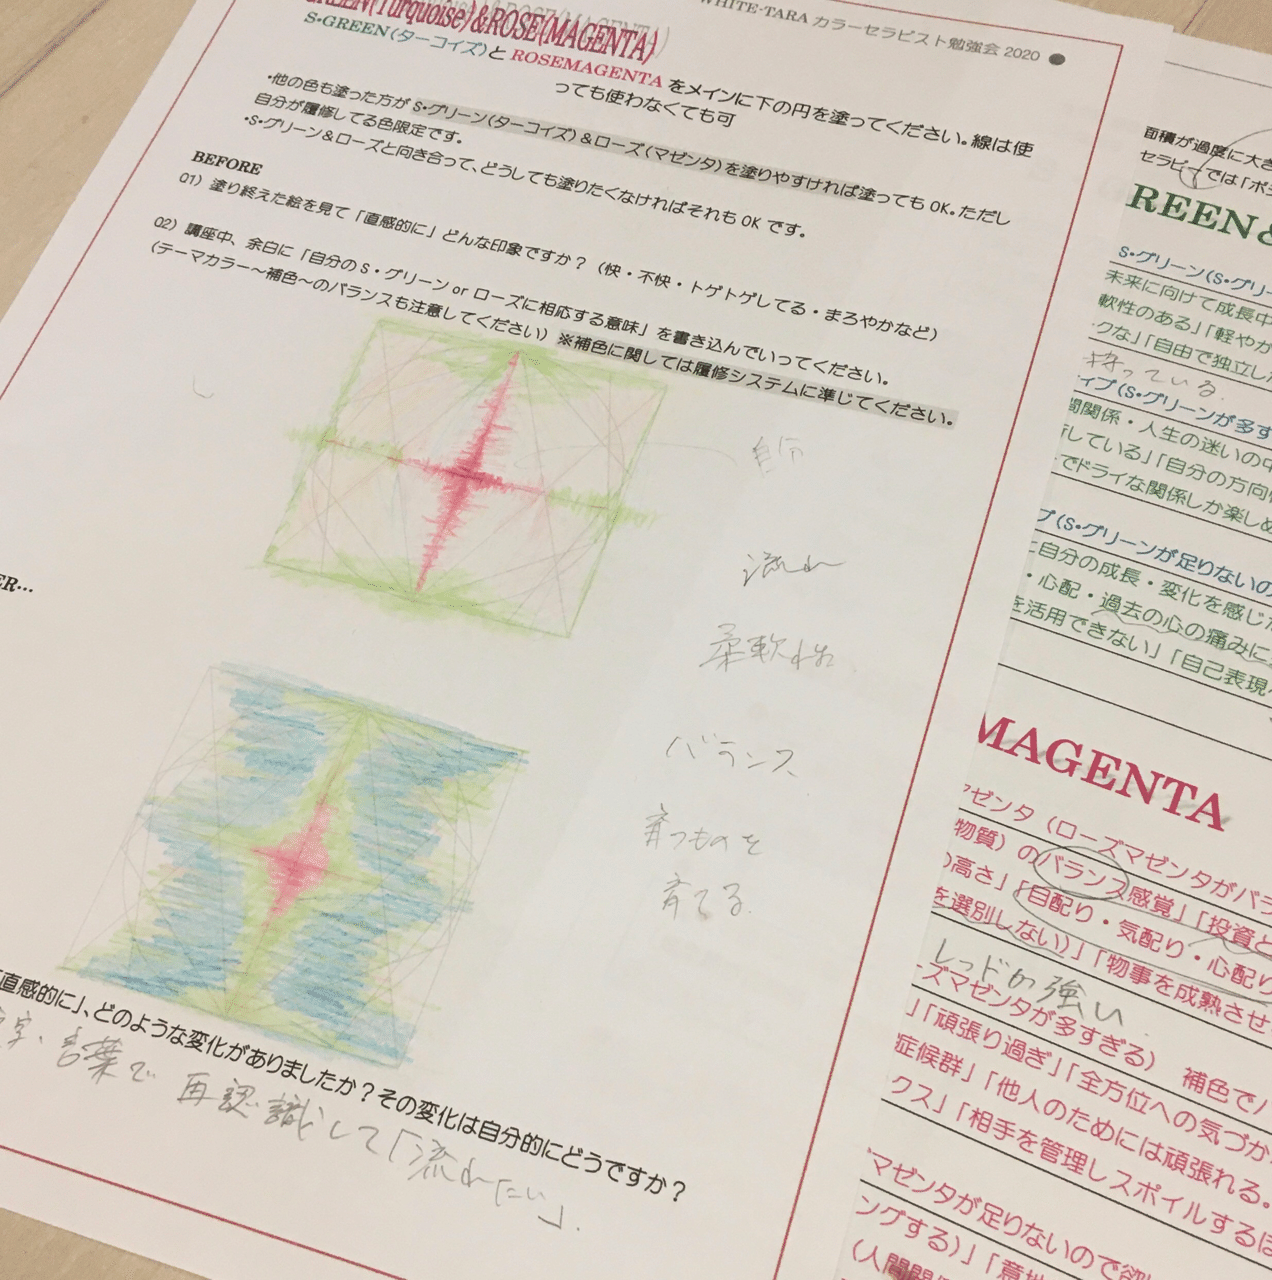 GREEN(Turquoise)&ROSE(MAGENTA)
WHITE-TARA カラーセラピスト勉強会 2020
S・GREEN(ターコイズ)と ROSEMAGENTA をメインに下の円を塗ってください。線は使
っても使わなくても可
・他の色も塗った方が S・グリーン(ターコイズ)&ローズ(マゼンタ)を塗りやすければ塗っても OK。ただし
自分が履修してる色限定です。
・S・グリーン&ローズと向き合って、どうしても塗りたくなければそれも OK です。
BEFORE
Q1) 塗り終えた絵を見て「直感的に」どんな印象ですか？（快・不快・トゲトゲしてる・まろやかなど）
Q2) 講座中、余白に「自分の S・グリーン or ローズに相応する意味」を書き込んでいってください。
(テーマカラー～補色～のバランスも注意してください) ※補色に関しては履修システムに準じてください。
自分
流れ
柔軟性
バランス
育つものを
育てる
ER…
「直感的に」、どのような変化がありましたか？その変化は自分的にどうですか？
字、言葉で 再認識して「流れたい」
面積が過度に大き
セラピーでは「ポジ
REEN&
S・グリーン(S・グリー
未来に向けて成長中
軟性のある」「軽やか
クな」「自由で独立した
持っている
ィプ(S・グリーンが多す
間関係・人生の迷いの中
している」「自分の方向
でドライな関係しか楽しめ
プ(S・グリーンが足りないの
に自分の成長・変化を感じた
・心配・過去の心の痛みに
を活用できない」「自己表現
MAGENTA
マゼンタ（ローズマゼンタがバラ
物質）のバランス感覚」「投資と
の高さ」「目配り・気配り・心配り
を選別しない)」「物事を成熟させ
レッドが強い
ーズマゼンタが多すぎる） 補色でノ
」「頑張り過ぎ」「全方位への気づか
症候群」「他人のためには頑張れる。
クス」「相手を管理しスポイルするほ
マゼンタが足りないので欲
ングする)」「意地
(人間関係